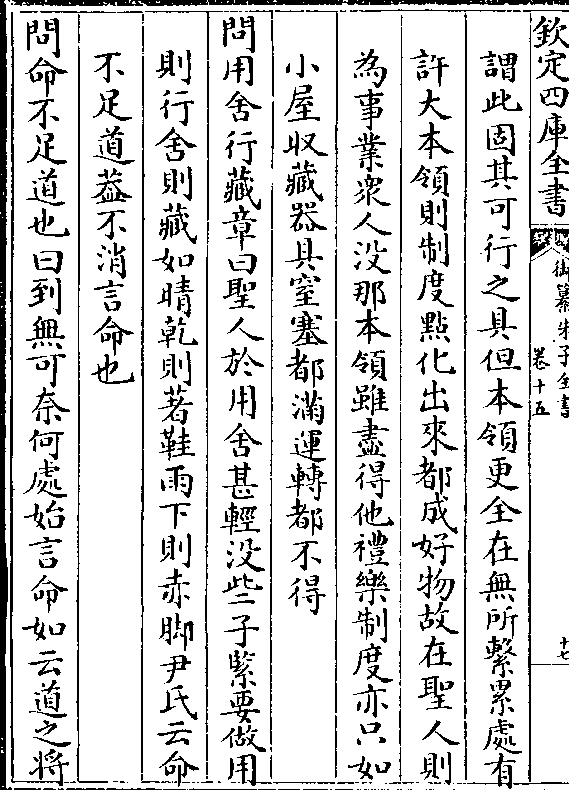 欽定四庫全書
御纂朱子全書
卷十五
十七
謂此固其可行之具但本領更全在無所繫累處有
許大本領則制度點化出來都成好物故在聖人則
為事業衆人没那本領雖盡得他禮樂制度亦只如
小屋收藏器具窒塞都滿運轉都不得
問用舍行藏章曰聖人於用舍甚輕没些子緊要做用
則行舍則藏如晴乾則著鞋雨下則赤脚尹氏云命
不足道葢不消言命也
問命不足道也曰到無可奈何處始言命如云道之將